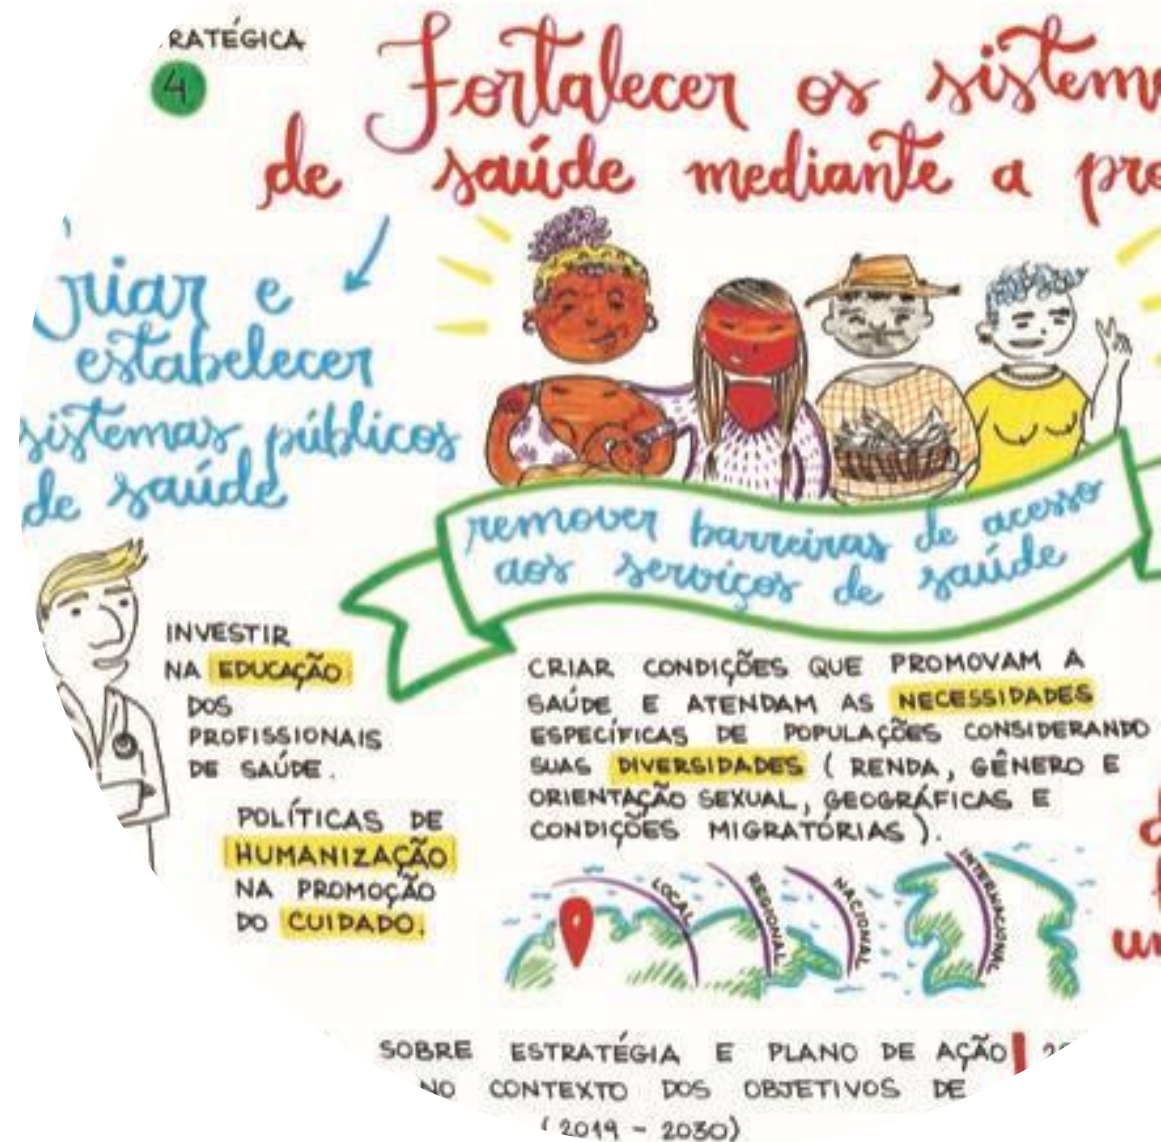 RATÉGICA
4
Fortalecer os
de saúde mediante a
Criar e
estabelecer
sistemas públicos
de saúde
remover barreiras de acesso
aos serviços de saúde
INVESTIR
NA EDUCAÇÃO
DOS
PROFISSIONAIS
DE SAÚDE.
POLÍTICAS DE
HUMANIZAÇÃO
NA PROMOÇÃO
DO CUIDADO.
CRIAR CONDIÇÕES QUE PROMOVAM A
SAÚDE E ATENDAM AS NECESSIDADES
ESPECÍFICAS DE POPULAÇÕES CONSIDERANDO
SUAS DIVERSIDADES (RENDA, GÊNERO E
ORIENTAÇÃO SEXUAL, GEOGRÁFICAS E
CONDIÇÕES MIGRATÓRIAS).
LOCAL
REGIONAL
NACIONAL
INTERNACIONAL
SOBRE ESTRATÉGIA E PLANO DE AÇÃO
NO CONTEXTO DOS OBJETIVOS DE
(2019 - 2030)